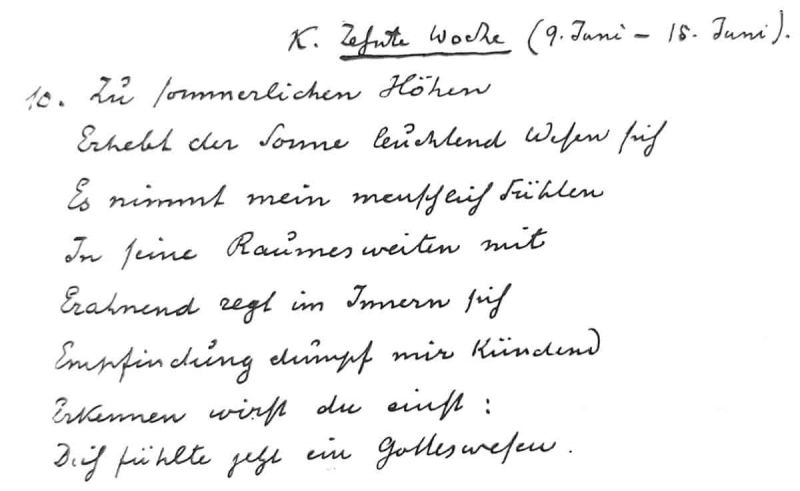 K. Zehnte Woche (9. Juni – 15. Juni).
10. Zu sommerlichen Höhen
Erhebt der Sonne leuchtend Wesen sich
Es nimmt mein menschlich Fühlen
In seine Raumesweiten mit
Erahnend regt im Innern sich
Empfindung dumpf mir kündend
Erkennen wirst du einst:
Dich fühlte jetzt ein Gotteswesen.